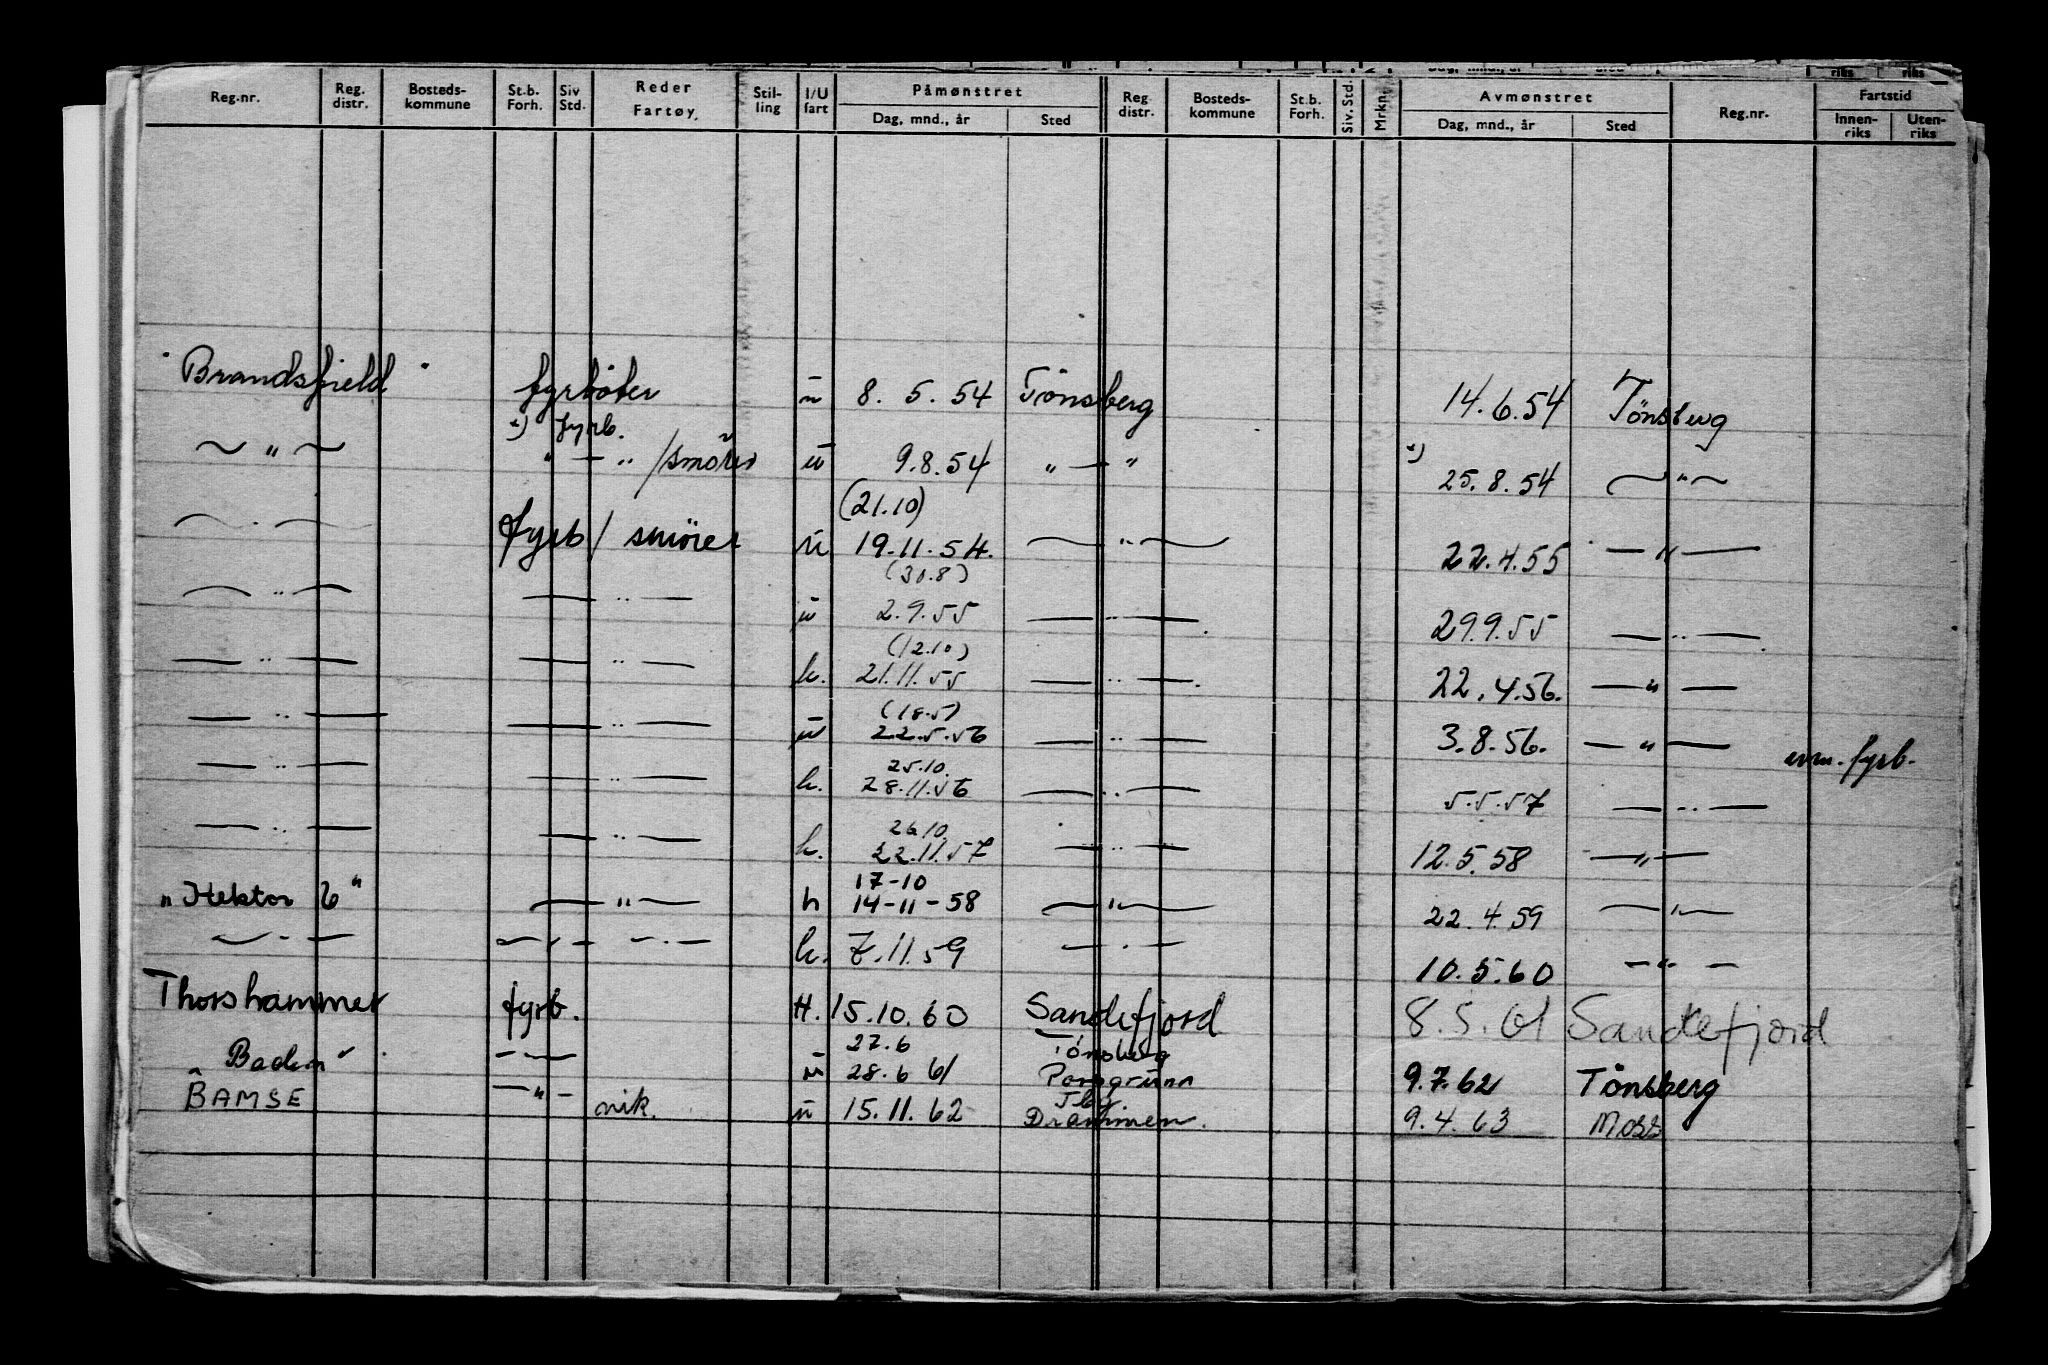 Reg.nr. Reg. distr. Bosteds-kommune St.b. Forh. Siv Std. Reder Fartøy Stil-ling I/U fart Påmønstret Dag, mnd., år Sted Reg distr. Bosteds-kommune St.b. Forh. Siv. Std. Mrkn. Avmønstret Dag, mnd., år Sted Reg.nr. Fartstid Innen-riks Uten-riks
"Brandsfield" fyrbøter u 8. 5. 54 Tönsberg 14.6.54 Tönsberg
x) fyrb.
~ " ~ " — " /smører u 9.8.54 " — " x) 25.8.54 ~ " ~
(21.10)
~ " ~ fyrb / smører u 19.11.54. ~ " ~ 22.4.55 — " —
(30.8)
~ " ~ — " — u 2.9.55 — " — 29.9.55 — " —
(12.10)
— " — — " — h. 21.11.55 — " — 22.4.56. — " —
(18.5)
— " — — " — u 22.5.56 — " — 3.8.56. — " — fyrb.
25.10
— " — — " — h. 28.11.56 — " — 5.5.57 — " —
26.10
— " — — " — h. 22.11.57 — " — 12.5.58 — " —
17-10
"Hektor 6" — " — h 14-11-58 — " — 22.4.59 — " —
— " — — " — — " — h. 7.11.59 — " — 10.5.60 — " —
Thorshammer fyrb. H. 15.10.60 Sandefjord 8.5.61 Sandefjord
27.6 Tönsberg
"Baden" — " — u 28.6 61 Porsgrunn 9.7.62 Tönsberg
Tbg
BAMSE — " — vik. u 15.11.62 Drammen. 9.4.63 Moss